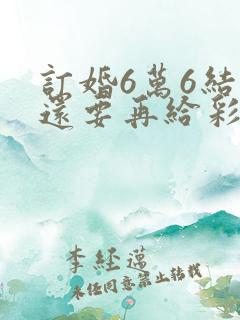 訂婚6萬6結
還要再給彩
李經邁
未经同意禁止转载